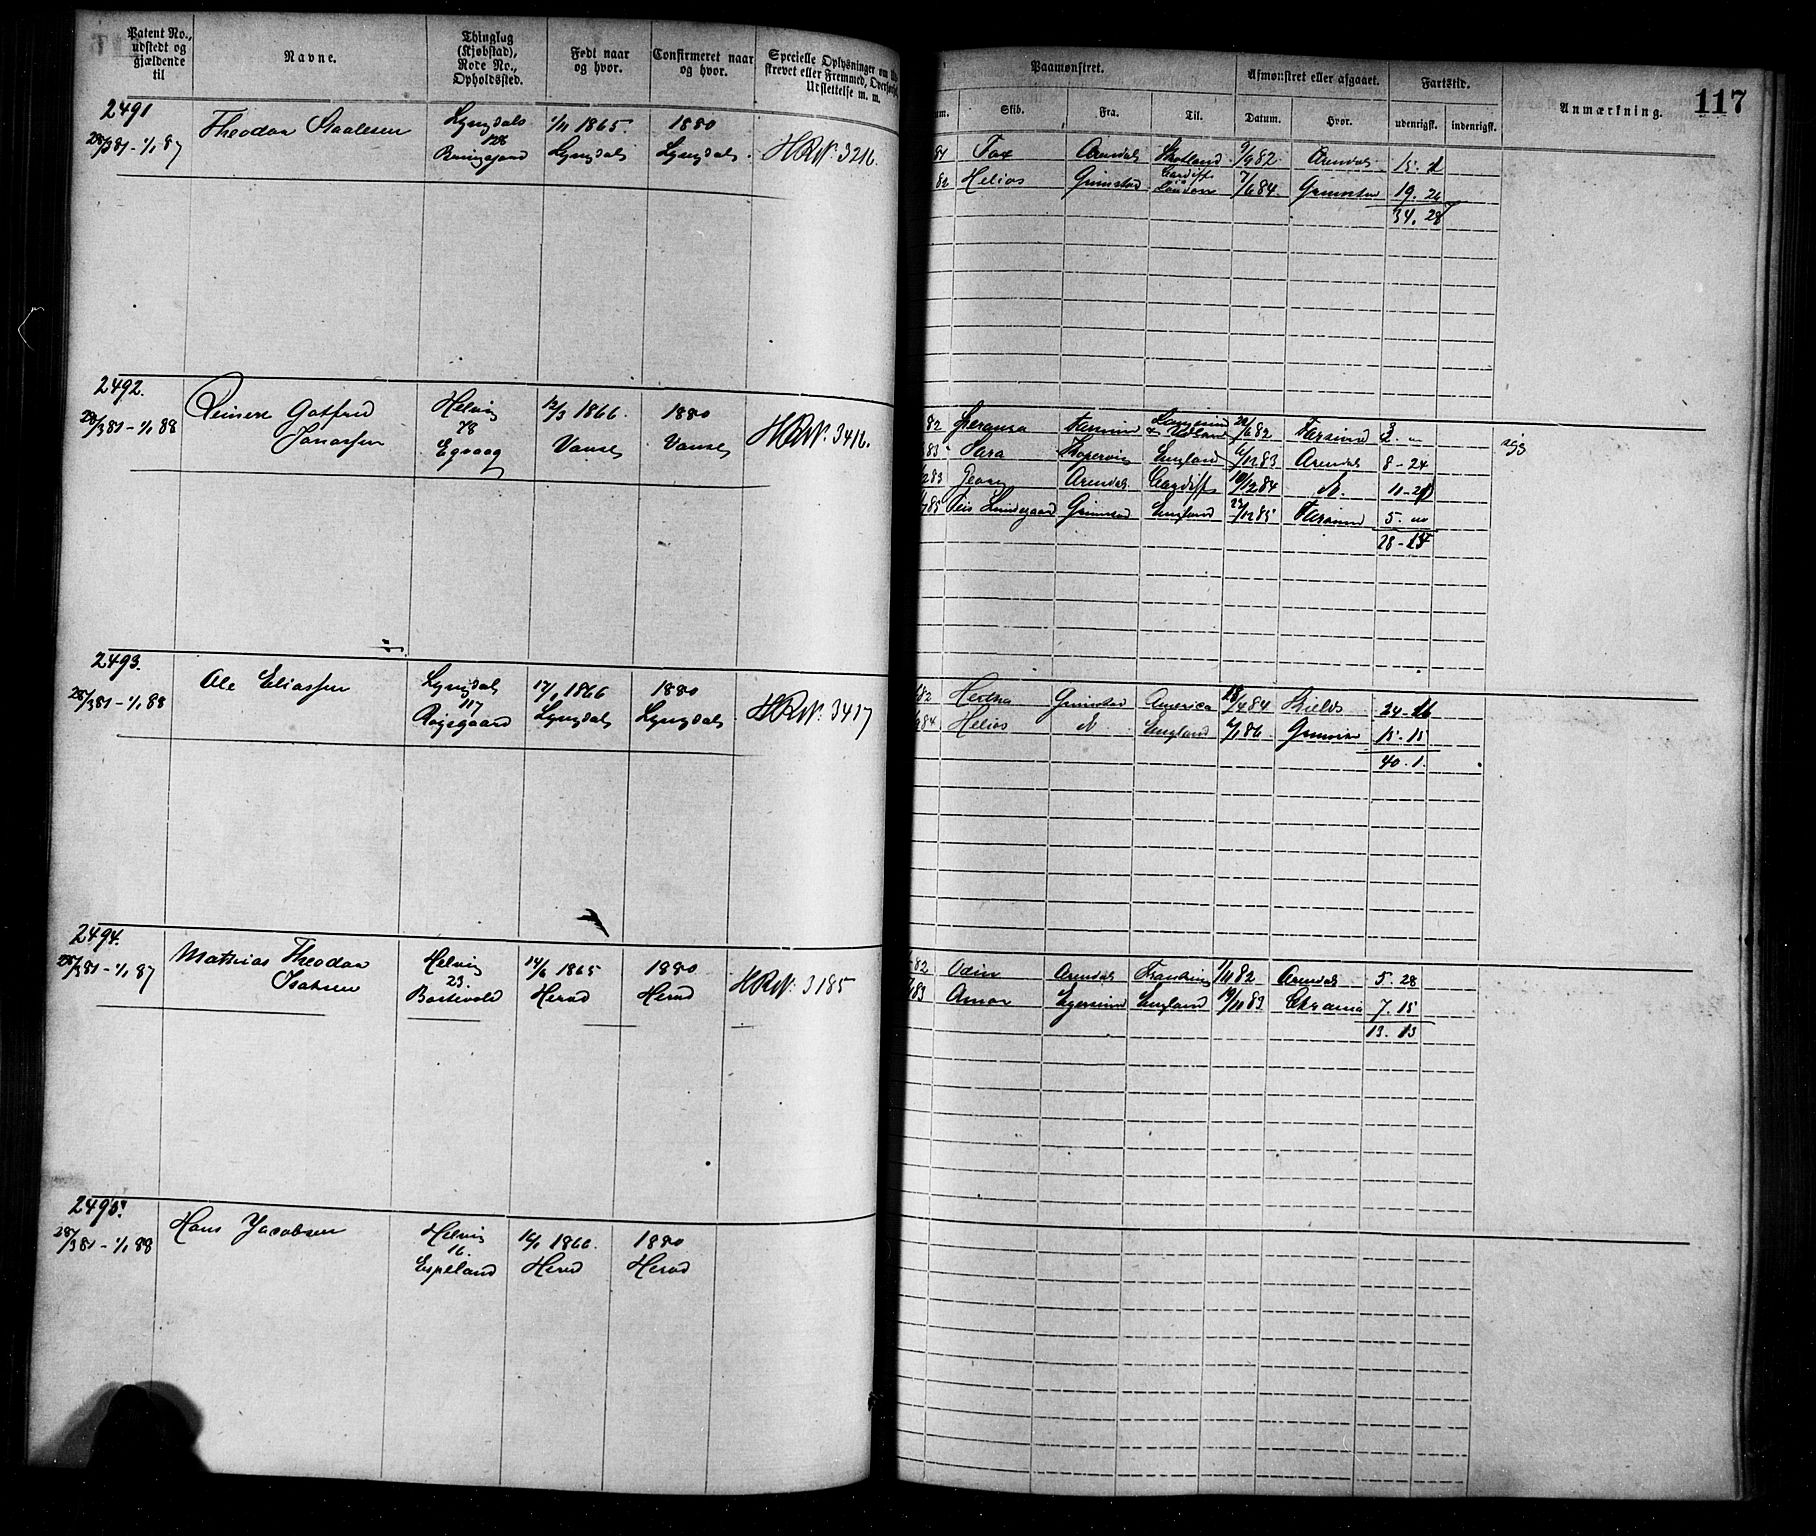 117
Patent No., udstedt og gjældende til
Navne.
Thinglag (Kjøbstad), Rode No., Opholdssted.
Født naar og hvor.
Confirmeret naar og hvor.
Specielle Oplysninger om
strevet eller Fremmed,
Udslettelse m. m.
Paamønstret.
Skib.
Fra.
Til.
Afmønstret eller afgaaet.
Datum.
Hvor.
Fartstid.
udenrigsk.
indenrigsk.
Anmærkning.
2491
28/3 81 - 1/1 87
Theodor Staalesen
Lyngdal 128
1/11 1865. Lyngdal
1880 Lyngdal.
HRN: 3216.
81 Fox Arendal Skotland 9/9 82 Arendal 15.
82 Helios Grimstad Cardiff London 7/6 84. Grimstad 19. 26
34. 28
2492.
28/3 81 - 1/1 88
Gotfred
Jonassen
Helvig 48 Egvaag
12/3 1866. Vanse
1880 Vanse
HRN: 3416.
82 Speransa Farsund 6 82 Farsund
83 Sara Kopervig England 12 83 Arendal 8 - 24
2 83 Georg Arendal Cardiff 10/12 84 d. 11 -
85 Lundegaard Grimstad England 12 85 Farsund 5.
28 -
2493.
28/3 81 - 1/1 88
Ole Eliassen
Lyngdal 117
17/1 1866 Lyngdal
1880 Lyngdal
HRN: 3417
82 Hertha Grimstad America 18/4 84 Shields 24.
84 Helios d England 1 86. Grimstad 15 - 15
40. 1.
2494.
28/3 81 - 1/1 87
Mathias Theodor
Isaksen
Helvig 23.
14/6 1865 Herad
1880 Herad
HRN: 3185
82 Odin Arendal 11 82 Arendal 5. 28
83 Amor Egersund England 19/11 83 Chrania 7. 15
13. 13
2495.
28/3 81 - 1/1 88
Hans Jacobsen
Helvig 16. Espeland
16/1 1866. Herad
1880 Herad